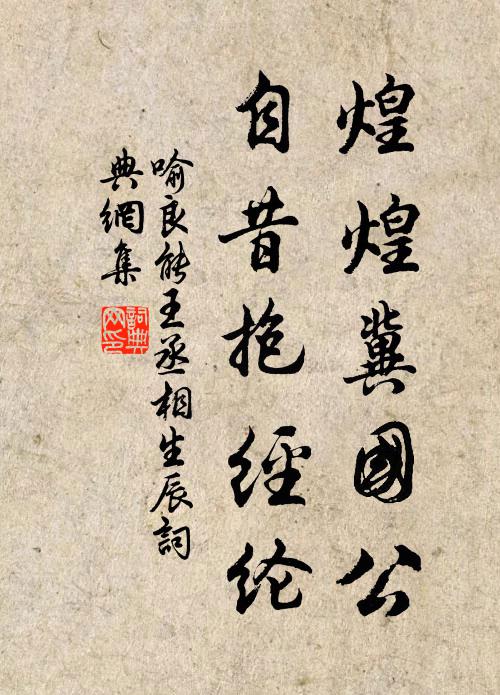 煌煌冀國公
自昔抱經纶
喻良能王丞相生辰詞
典網集
詞典网印